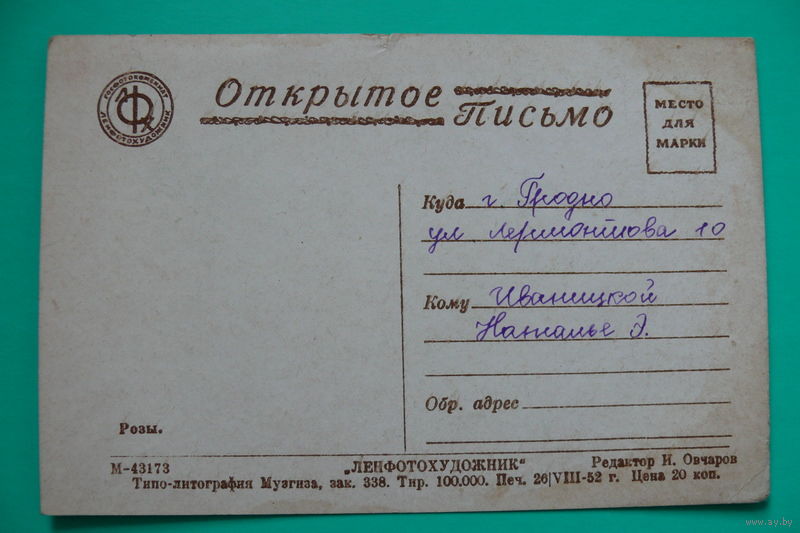 ГОСФОТОКОМБИНАТ
ЛФХ
ЛЕНФОТОХУДОЖНИК
Открытое Письмо
МЕСТО
ДЛЯ
МАРКИ
Куда г. Гродно
ул Лермонтова 10
Кому Иваницкой
Наталье Э.
Обр. адрес
Розы.
М-43173 „ЛЕНФОТОХУДОЖНИК“ Редактор И. Овчаров
Типо-литография Музгиза, зак. 338. Тир. 100.000. Печ. 26|VIII-52 г. Цена 20 коп.
www.ay.by